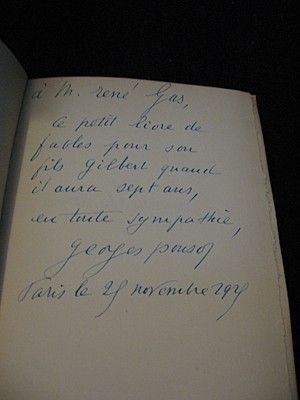 à M. rené Gas,
ce petit livre de
fables pour son
fils gilbert quand
il aura sept ans,
en toute sympathie,
georges
Paris le 25 novembre